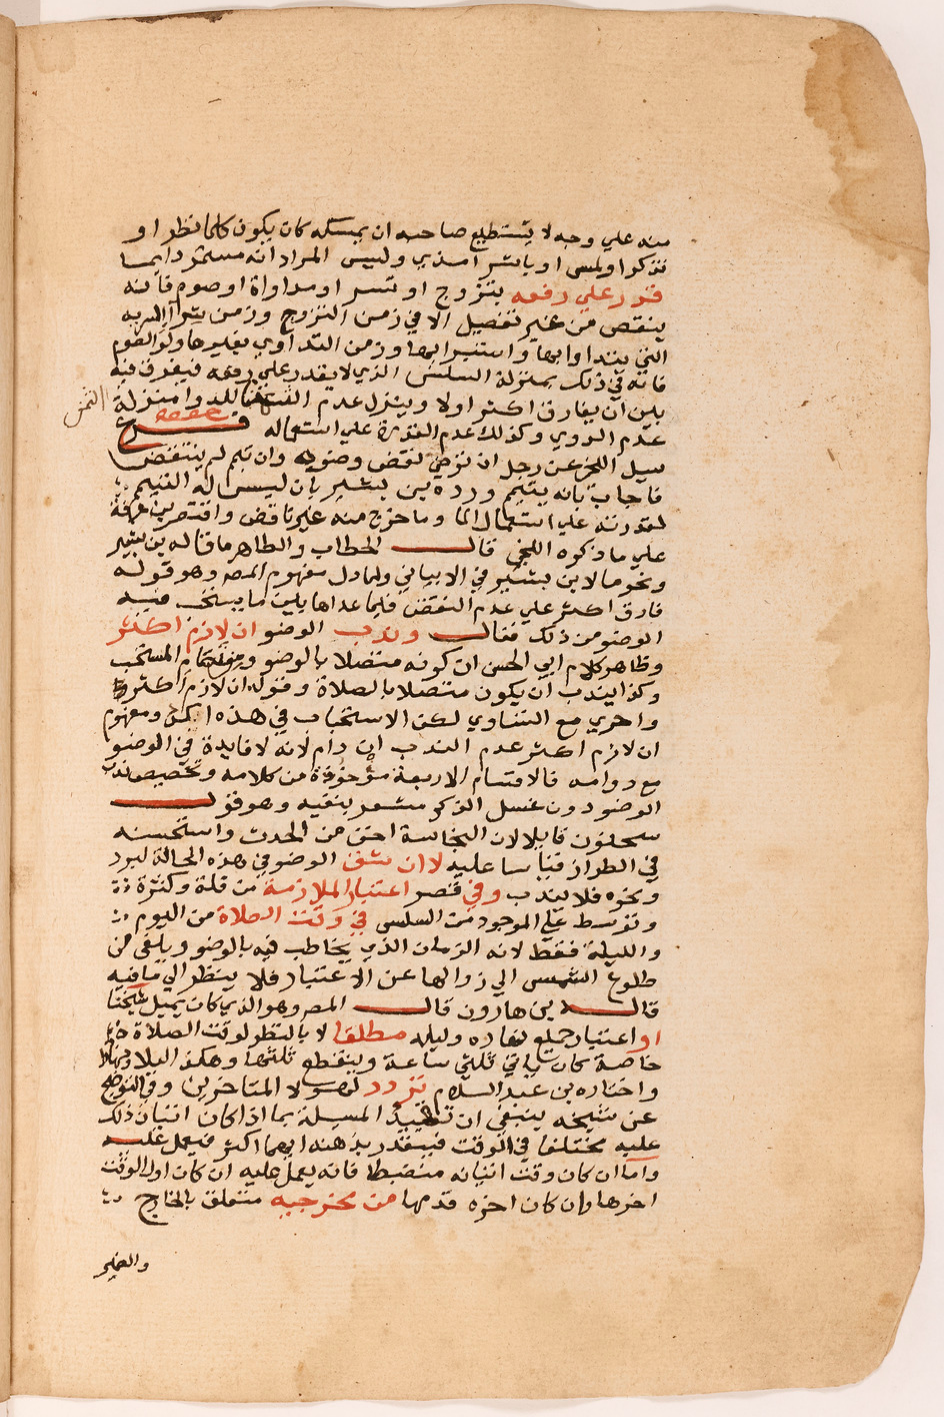 منه علي وجه لا يستطيع صاحبه ان يمسكه كان يكون كلما نظر او
تذكر او لمس او باشر امذي وليس المراد انه مستمر دايما
قدر علي رفعه بتزوج او تسر او مداواة او صوم فانه
ينقض من غير تفصيل الا في زمن التزوج وزمن شرا السرية
التي يتداوا بها واستبرايها وزمن التداوي بغيرها ولو الصوم
فانه في ذلك بمنزلة السلس الذي لا يقدر علي رفعه فيفرق فيه
بين ان يفارق اكثر اولا وينزل عدم للدوا منزلة
الثمن
عدم الدوي وكذلك عدم القدرة علي استعماله فرع
سيل اللخمي عن رجل ان توضي نقض وضويه وان تيمم لم ينتقض
فاجاب بانه يتيمم ورده بن بشير بان ليس له التيمم
لقدرته علي استعمال الما وما خرج منه غير ناقض واقتصر بن عرفة
علي ما ذكره اللخمي قال الحطاب والظاهر ما قاله بن بشير
ونحوه لابن بشير في الابياني ولما دل مفهوم المص وهو قوله
فارق اكثر علي عدم النقض فيما عداها بين ما يستحب فيه
الوضو من ذلك فقال وندب الوضو ان لازم اكثر
وظاهر كلام ابي الحسن ان كونه متصلا بالوضو المستحب
وكذا يندب ان يكون متصلا بالصلاة وقوله ان لازم اكثر
واحري مع التساوي لكن الاستحباب في هذه ومفهوم
ان لازم اكثر عدم الندب ان دام لانه لا فايدة في الوضو
مع دوامه فالاقسام الاربعة ماخوذة من كلامه وتخصيص ندب
الوضو دون غسل الذكر مشعر بنفيه وهو قول
سحنون قايلا لان النجاسة اخف من الحدث واستحسنه
في الطراز قياسا عليه لا ان شق الوضو في هذه الحالة لبرد
ونحوه فلا يندب وفي قصر اعتبار الملازمة من قلة وكثرة
وتوسط علي الموجود من السلس في وقت الصلاة من اليوم
والليلة فقط لانه الزمان الذي يخاطب فيه بالوضو ويلغي من
طلوع الشمس الي زوالها عن الاعتبار فلا ينظر الي ما فيه
قاله بن هارون قال المص وهو الذي كان يميل شيخنا
او اعتبار جميع نهاره وليله مطلقا لا بالنظر لوقت الصلاة
خاصة كان ياتي ثلثي ساعة وينقطع ثلثها وهكذا ليلا ونهارا
واختاره بن عبد السلام تردد لهولا المتاخرين وفي التوضيح
عن شيخه ينبغي ان تقيد المسيلة بما اذا كان اتيان ذلك
عليه مختلفا في الوقت فيقدر بذهنه ايهما اكثر فيعمل عليه
واما ان كان وقت اتيانه منضبطا فانه يعمل عليه ان كان اول الوقت
اخرها وان كان اخره قدمها من مخرجيه متعلق بالخارج
والضمير